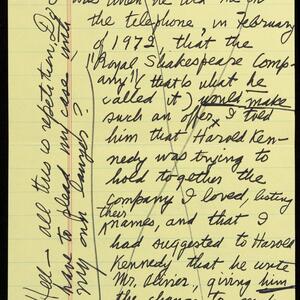 was when he told me on
the telephone, in February
of 1972, that the
"Royal Shakespeare Comp-
any" (that's what he
called it) would make
such an offer. I told
him that Harold Ken-
nedy was trying to
hold together the
company I loved, listing
their names, and that I
had suggested to Harold
Kennedy that he write
Mr. Olivier, giving him
the chance to
Hell – all this is repetition. Do I
have to plead my case with
my own lawyer?